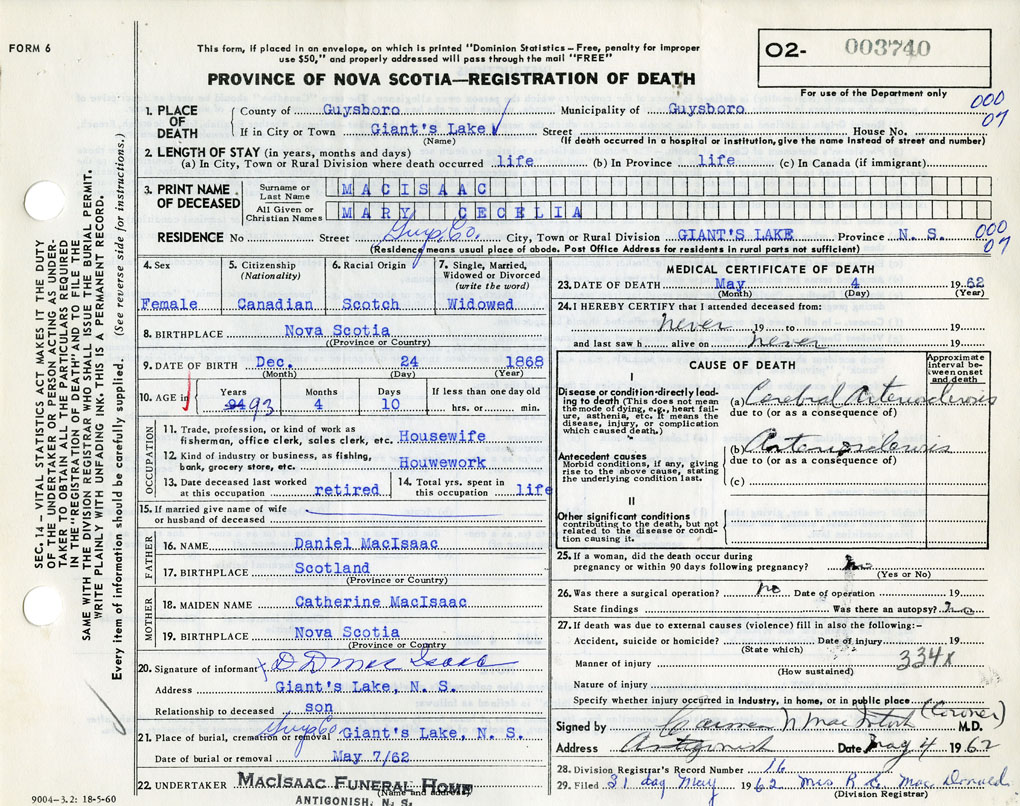 FORM 6
This form, if placed in an envelope, on which is printed "Dominion Statistics – Free, penalty for improper
use $50," and properly addressed will pass through the mail "FREE"
PROVINCE OF NOVA SCOTIA—REGISTRATION OF DEATH
O2- 003740
For use of the Department only
000
07
SEC. 14 – VITAL STATISTICS ACT MAKES IT THE DUTY
OF THE UNDERTAKER OR PERSON ACTING AS UNDER-
TAKER TO OBTAIN ALL THE PARTICULARS REQUIRED
IN THE "REGISTRATION OF DEATH" AND TO FILE THE
SAME WITH THE DIVISION REGISTRAR WHO SHALL ISSUE THE BURIAL PERMIT.
WRITE PLAINLY WITH UNFADING INK. THIS IS A PERMANENT RECORD.
Every item of information should be carefully supplied. (See reverse side for instructions.)
1. PLACE OF DEATH
County of Guysboro Municipality of Guysboro
If in City or Town Giant's Lake Street House No.
(Name) (If death occurred in a hospital or institution, give the name instead of street and number)
2. LENGTH OF STAY (in years, months and days)
(a) In City, Town or Rural Division where death occurred life (b) In Province life (c) In Canada (if immigrant)
3. PRINT NAME OF DECEASED
Surname or Last Name MACISAAC
All Given or Christian Names MARY CECELIA
RESIDENCE No Street Guys. Co. City, Town or Rural Division GIANT'S LAKE Province N. S. 000
07
(Residence means usual place of abode. Post Office Address for residents in rural parts not sufficient)
4. Sex
Female
5. Citizenship
(Nationality)
Canadian
6. Racial Origin
Scotch
7. Single, Married,
Widowed or Divorced
(write the word)
Widowed
8. BIRTHPLACE Nova Scotia
((Province or Country)
9. DATE OF BIRTH Dec. 24 1868
(Month) (Day) (Year)
10. AGE in
Years Months Days If less than one day old
94 93 4 10 hrs. or min.
OCCUPATION
11. Trade, profession, or kind of work as
fisherman, office clerk, sales clerk, etc. Housewife
12. Kind of industry or business, as fishing,
bank, grocery store, etc. Houwework
13. Date deceased last worked
at this occupation retired
14. Total yrs. spent in
this occupation life
15. If married give name of wife
or husband of deceased
FATHER
16. NAME Daniel MacIsaac
17. BIRTHPLACE Scotland
(Province or Country)
MOTHER
18. MAIDEN NAME Catherine MacIsaac
19. BIRTHPLACE Nova Scotia
(Province or Country
20. Signature of informant D D Mac Isaac
Address Giant's Lake, N. S.
Relationship to deceased son
21. Place of burial, cremation or removal Guys Co Giant's Lake, N. S.
Date of burial or removal May 7/62
22. UNDERTAKER MACISAAC FUNERAL HOME
(Name and address)
ANTIGONISH, N. S.
9004-3.2: 18-5-60
MEDICAL CERTIFICATE OF DEATH
23. DATE OF DEATH May 4 1962
(Month) (Day) (Year)
24. I HEREBY CERTIFY that I attended deceased from:
never 19 to 19
and last saw h alive on never 19
CAUSE OF DEATH
Approximate
interval be-
tween onset
and death
I
Disease or condition directly lead-
ing to death (This does not mean
the mode of dying, e.g., heart fail-
ure, asthenia, etc. It means the
disease, injury, or complication
which caused death.)
(a) Cerebral Arteriosclerosis
due to (or as a consequence of)
Antecedent causes
Morbid conditions, if any, giving
rise to the above cause, stating
the underlying condition last.
(b) Arteriosclerosis
due to (or as a consequence of)
(c)
II
Other significant conditions
contributing to the death, but not
related to the disease or condi-
tion causing it.
25. If a woman, did the death occur during
pregnancy or within 90 days following pregnancy? no
(Yes or No)
26. Was there a surgical operation? no Date of operation 19
State findings Was there an autopsy? no
27. If death was due to external causes (violence) fill in also the following:-
Accident, suicide or homicide? Date of injury 19
(State which)
334x
Manner of injury
(How sustained)
Nature of injury
Specify whether injury occurred in industry, in home, or in public place
Signed by N MacIntosh (Coroner) M.D.
Address Antigonish Date May 4 1962
28. Division Registrar's Record Number 16
29. Filed 31 day May 1962 Mrs R MacDonald
(Division Registrar)